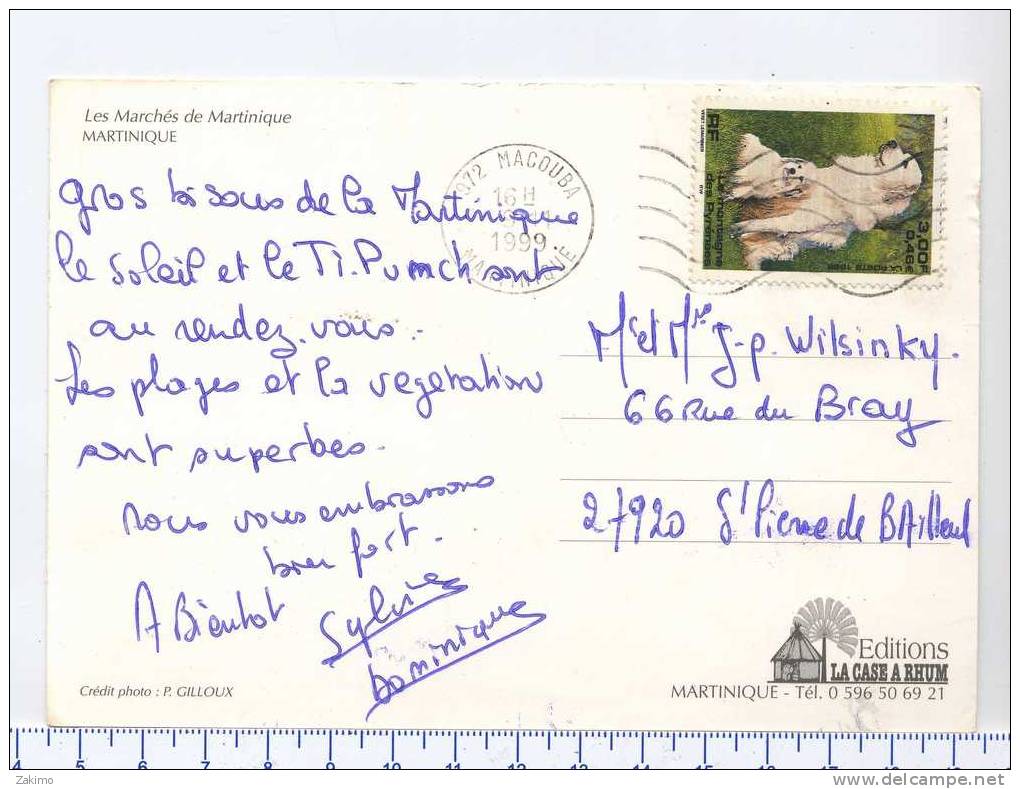 Les Marchés de Martinique
MARTINIQUE
Gros bisous de la Martinique
le soleil et le Ti. Punch sont
au rendez-vous.
Les plages et la vegetation
sont superbes.
nous vous embrassons
bien fort.
A Bientot
Sylvie
Dominique
972 MACOUBA
16 H
1999
MARTINIQUE
RF
Le montagne
des Pyrénées
3,00F
0,46€
LA POSTE 1999
Mr et Mme J-P. Wilsinky.
66 Rue du Bray
27920 St Pierre de BAilleul
Editions
LA CASE A RHUM
MARTINIQUE - Tél. 0 596 50 69 21
Crédit photo : P. GILLOUX
4 5 6 7 8 9 10 11 12 13 14 15 16 17 18 19
Zakimo
www.delcampe.net